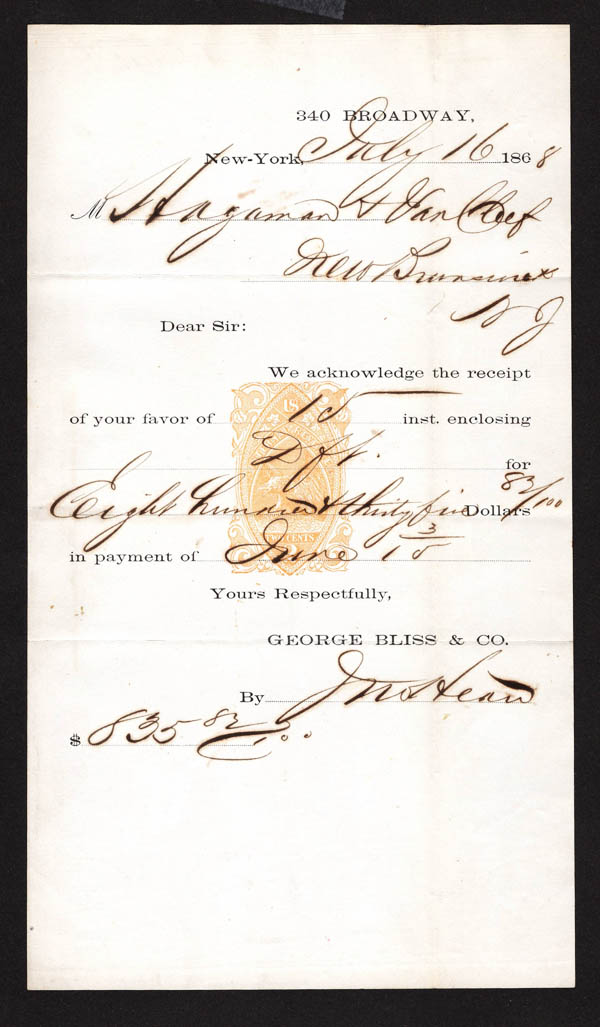 340 BROADWAY,
New-York, July 16 1868
M Hagaman & Van Cleef
New Brunswick
N J
Dear Sir:
We acknowledge the receipt
of your favor of 15 inst. enclosing
Dft. for
Eight hundred & thirty five Dollars 82/100
in payment of June 13/15
Yours Respectfully,
GEORGE BLISS & CO.
By Jno
$ 835 82/100